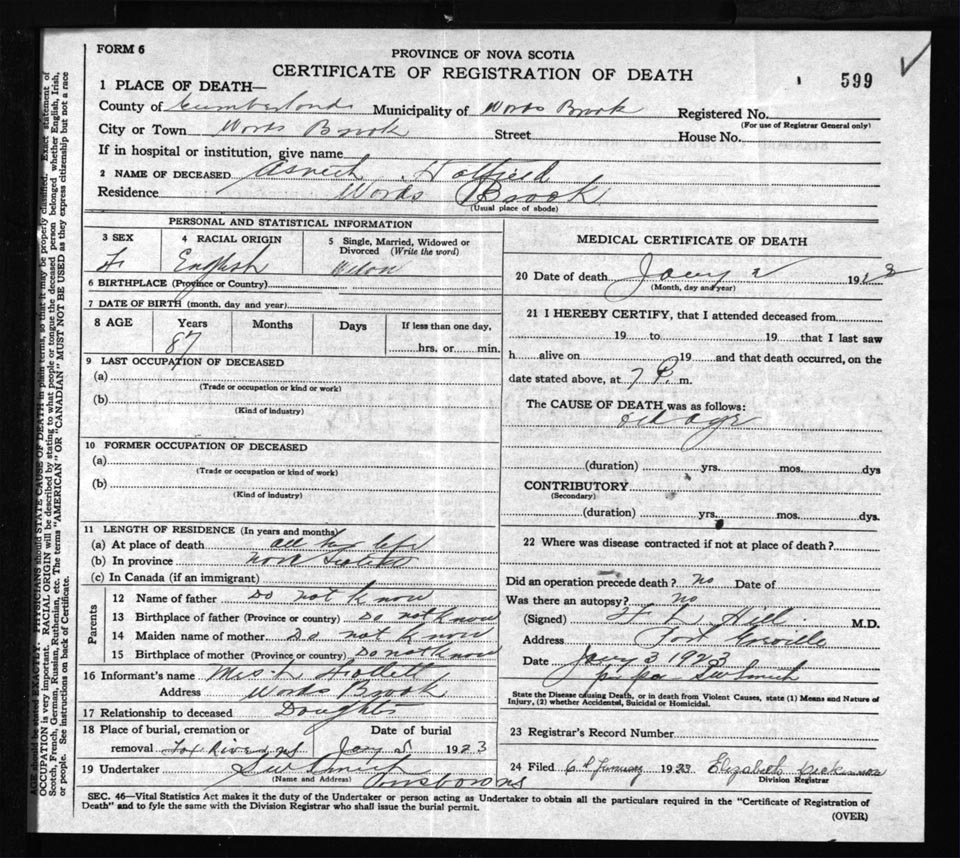 FORM 6
PROVINCE OF NOVA SCOTIA
CERTIFICATE OF REGISTRATION OF DEATH
599
1 PLACE OF DEATH—
County of Cumberland Municipality of Words Brook Registered No.
(For use of Registrar General only)
City or Town Words Brook Street House No.
If in hospital or institution, give name
2 NAME OF DECEASED Hatfield
Residence Words Brook
(Usual place of abode)
PERSONAL AND STATISTICAL INFORMATION
3 SEX F
4 RACIAL ORIGIN English
5 Single, Married, Widowed or Divorced (Write the word)
6 BIRTHPLACE (Province or Country)
7 DATE OF BIRTH (month, day and year)
8 AGE Years Months Days If less than one day,
87 hrs. or min.
9 LAST OCCUPATION OF DECEASED
(a)
(Trade or occupation or kind or work)
(b)
(Kind of industry)
10 FORMER OCCUPATION OF DECEASED
(a)
(Trade or occupation or kind of work)
(b)
(Kind of industry)
11 LENGTH OF RESIDENCE (In years and months)
(a) At place of death all her life
(b) In province Nova Scotia
(c) In Canada (if an immigrant)
Parents
12 Name of father Do not know
13 Birthplace of father (Province or country) Do not know
14 Maiden name of mother Do not know
15 Birthplace of mother (Province or country) Do not know
16 Informant's name Mrs
Address Words Brook
17 Relationship to deceased Doughts
18 Place of burial, cremation or Date of burial
removal Fox River NS Jany 5 1923
19 Undertaker
(Name and Address)
MEDICAL CERTIFICATE OF DEATH
20 Date of death Jany 2 1923
(Month, day and year)
21 I HEREBY CERTIFY, that I attended deceased from
19 to 19 that I last saw
h alive on 19 and that death occurred, on the
date stated above, at 7 P. m.
The CAUSE OF DEATH was as follows:
old age
(duration) yrs. mos. dys
CONTRIBUTORY
(Secondary)
(duration) yrs. mos. dys.
22 Where was disease contracted if not at place of death?
Did an operation precede death? no Date of
Was there an autopsy? no
(Signed) Hill M.D.
Address Port Greville
Date Jany 3 1923
State the Disease causing Death, or in death from Violent Causes, state (1) Means and Nature of
Injury, (2) whether Accidental, Suicidal or Homicidal.
23 Registrar's Record Number
24 Filed 6th January 1923 Elizabeth
Division Registrar
SEC. 46—Vital Statistics Act makes it the duty of the Undertaker or person acting as Undertaker to obtain all the particulars required in the "Certificate of Registration of
Death" and to fyle the same with the Division Registrar who shall issue the burial permit.
(OVER)
AGE should be stated EXACTLY. PHYSICIANS should STATE CAUSE OF DEATH in plain terms, so that it may be properly classified. Exact statement of
OCCUPATION is very important. RACIAL ORIGIN will be described by stating to what people or tongue the deceased person belonged whether English, Irish,
Scotch, French, German, Russian, Ruthenian, etc. The terms "AMERICAN" OR "CANADIAN" MUST NOT BE USED as they express citizenship but not a race
or people. See instructions on back of Certificate.